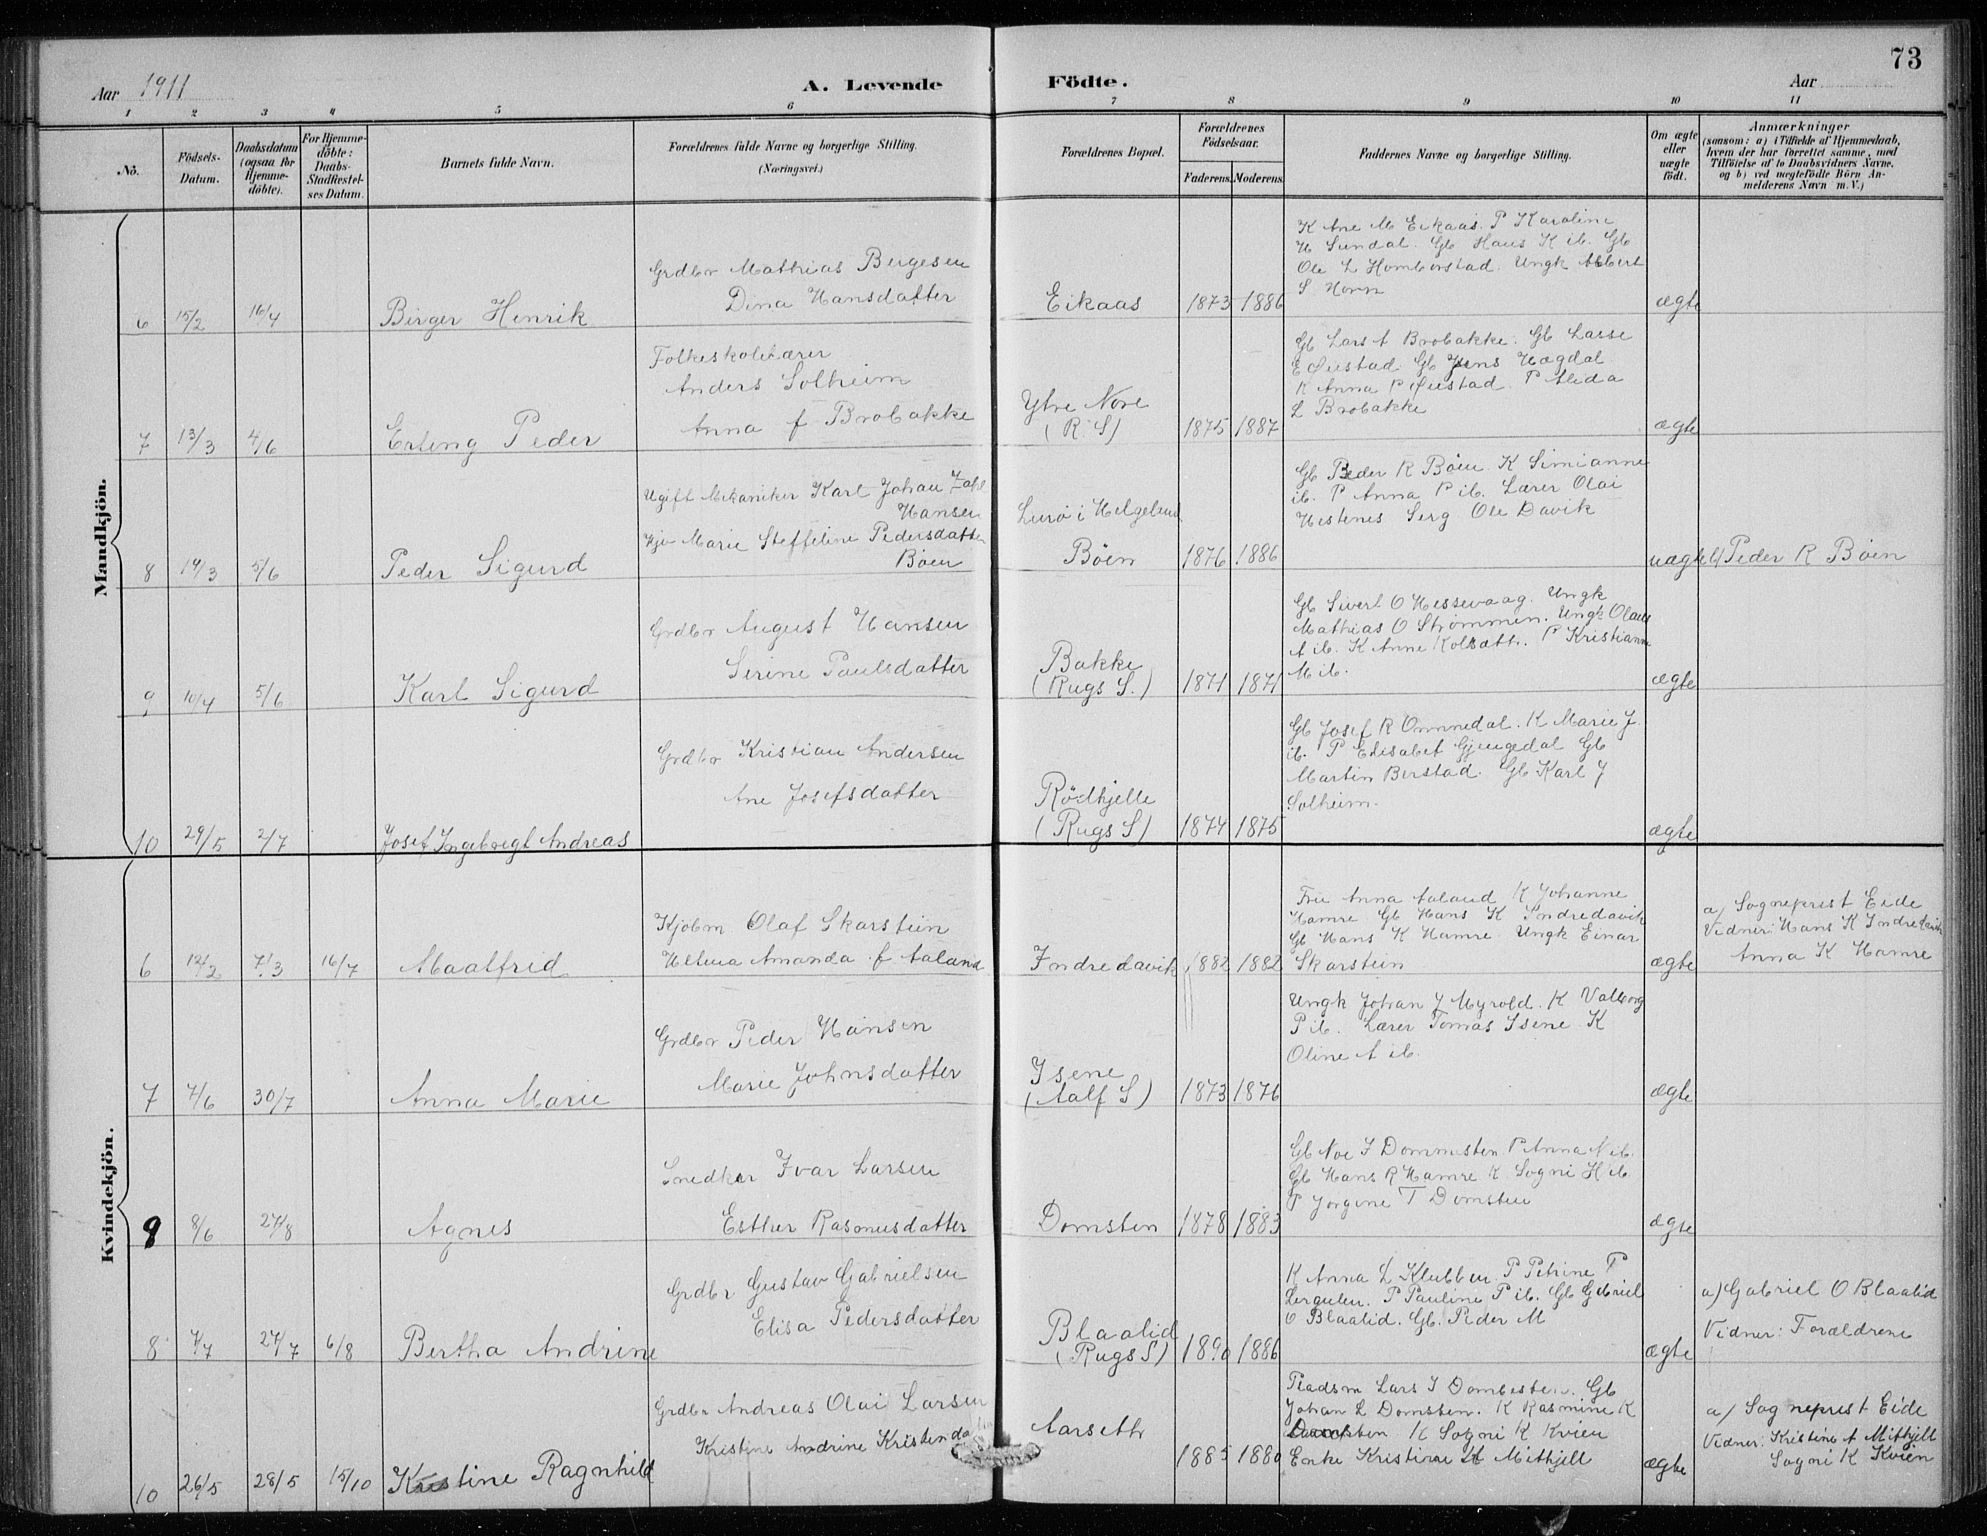 73
Aar 1911
A. Levende
Födte.
Aar
1 2 3 4 5 6 7 8 9 10 11
No.
Födsels-Datum.
Daabsdatum (ogsaa for Hjemme-döbte).
For Hjemme-döbte: Daabs-Stadfæstel-ses Datum.
Barnets fulde Navn.
Forældrenes fulde Navne og borgerlige Stilling.
(Næringsvei.)
Forældrenes Bopæl.
Forældrenes Födselsaar.
Faderens. Moderens.
Faddernes Navne og borgerlige Stilling.
Om ægte eller uægte födt.
Anmærkninger
(saasom: a) i Tilfælde af Hjemmedaab,
hvem der har forrettet samme, med
Tilföielse af to Daabsvidners Navne,
og b) ved uægtefödte Börn An-
melderens Navn m. V.)
Mandkjön.
K Ane M Eikaas. P Karoline
N Sundal. Gb Hans K ib. Gb
Ole L Homborstad. Ungk Albert
S Horn
Grdbr Mathias Birgesen
Dina Hansdatter
6 15/2 16/4 Birger Henrik Eikaas 1873 1886 ægte
Gb Lars A Brobakke. Gb Lasse
E Øiestad. Gb Jens Hægdal
K Anna P Øiestad. P Alida
L Brobakke
Folkeskolelærer
Anders Solheim
Anna f Brobakke
7 13/3 4/6 Erling Peder Ytre Nore
(R. S) 1875 1887 ægte
Gb Peder R Bøen. K Simianne
ib. P Anna P ib. Lærer Olai
Hestenes Serg Ole Davik
Ugift Mekaniker Karl Johan Zahl
Hansen Lurø i Helgeland
Marie Steffeline Pedersdatter
Bøen
8 19/3 5/6 Peder Sigurd Bøen 1876 1886 uægte b/ Peder R Bøen
Gb Sivert O Hessevaag. Ungk
Mathias O Strømmen. Ungk Olaus
A ib. K Anne Kolsæth. P Kristianne
M ib.
Grdbr August Hansen
Serine Paulsdatter
9 10/4 5/6 Karl Sigurd Bakke
(Rugs S.) 1871 1871 ægte
Gb Josef R Ommedal. K Marie J.
ib. P Elisabet Gjengedal Gb
Martin Berstad. Gb Karl J
Solheim.
Grdbr Kristian Andersen
Ane Josefsdatter
10 29/5 2/7 Josef Ingebregt Andreas Rødhjelle
(Rugs S) 1874 1875 ægte
Kvindekjön.
Frue Anna Aaland K Johanne
Hamre Gb Hans K Indredavik
Gb Hans K Hamre Ungk Einar
Skarstein
a/ Sogneprest Eide
Vidner: Hans K Indredavik
Anna K Hamre
Kjöbm Olaf Skarstein
Helma Amanda f Aaland
6 12/2 7/3 16/7 Maalfrid Indredavik 1882 1882 ægte
Ungk Johan J Myrold. K Valborg
P ib. Lærer Tomas Isene K
Oline A ib.
Grdbr Peder Hansen
Marie Johnsdatter
7 7/6 30/7 Anna Marie Isene
(Aalf S) 1873 1876 ægte
Gb Noe I Dommesten P Anna N ib.
Gb Hans R Hamre K Sogni H ib
P Jorgine T Domsten
Snedker Ivar Larsen
Esther Rasmusdatter
9 8/6 27/8 Agnes Domsten 1878 1883 ægte
K Anna L Klubben. P Petrine P
Lergulen. P Pauline P ib. Gb Gabriel
O Blaalid. Gb. Peder M
a) Gabriel O Blaalid
Vidner: Forældrene
Grdbr Gustav Gabrielsen
Elisa Pedersdatter
8 7/7 27/7 6/8 Bertha Andrine Blaalid
(Rugs S) 1890 1886 ægte
Pladsm Lars I Dombesten. Gb
Johan L Domsten. K Rasmine K
Domsten K Sogni K Kvien
Enke Kristine A Mithjell
a/ Sogneprest Eide
Vidner: Kristine A Mithjell
Sogni K Kvien
Grdbr Andreas Olai Larsen
Kristine Andrine
10 26/5 28/5 15/10 Kristine Ragnhild Aarseth 1885 1880 ægte